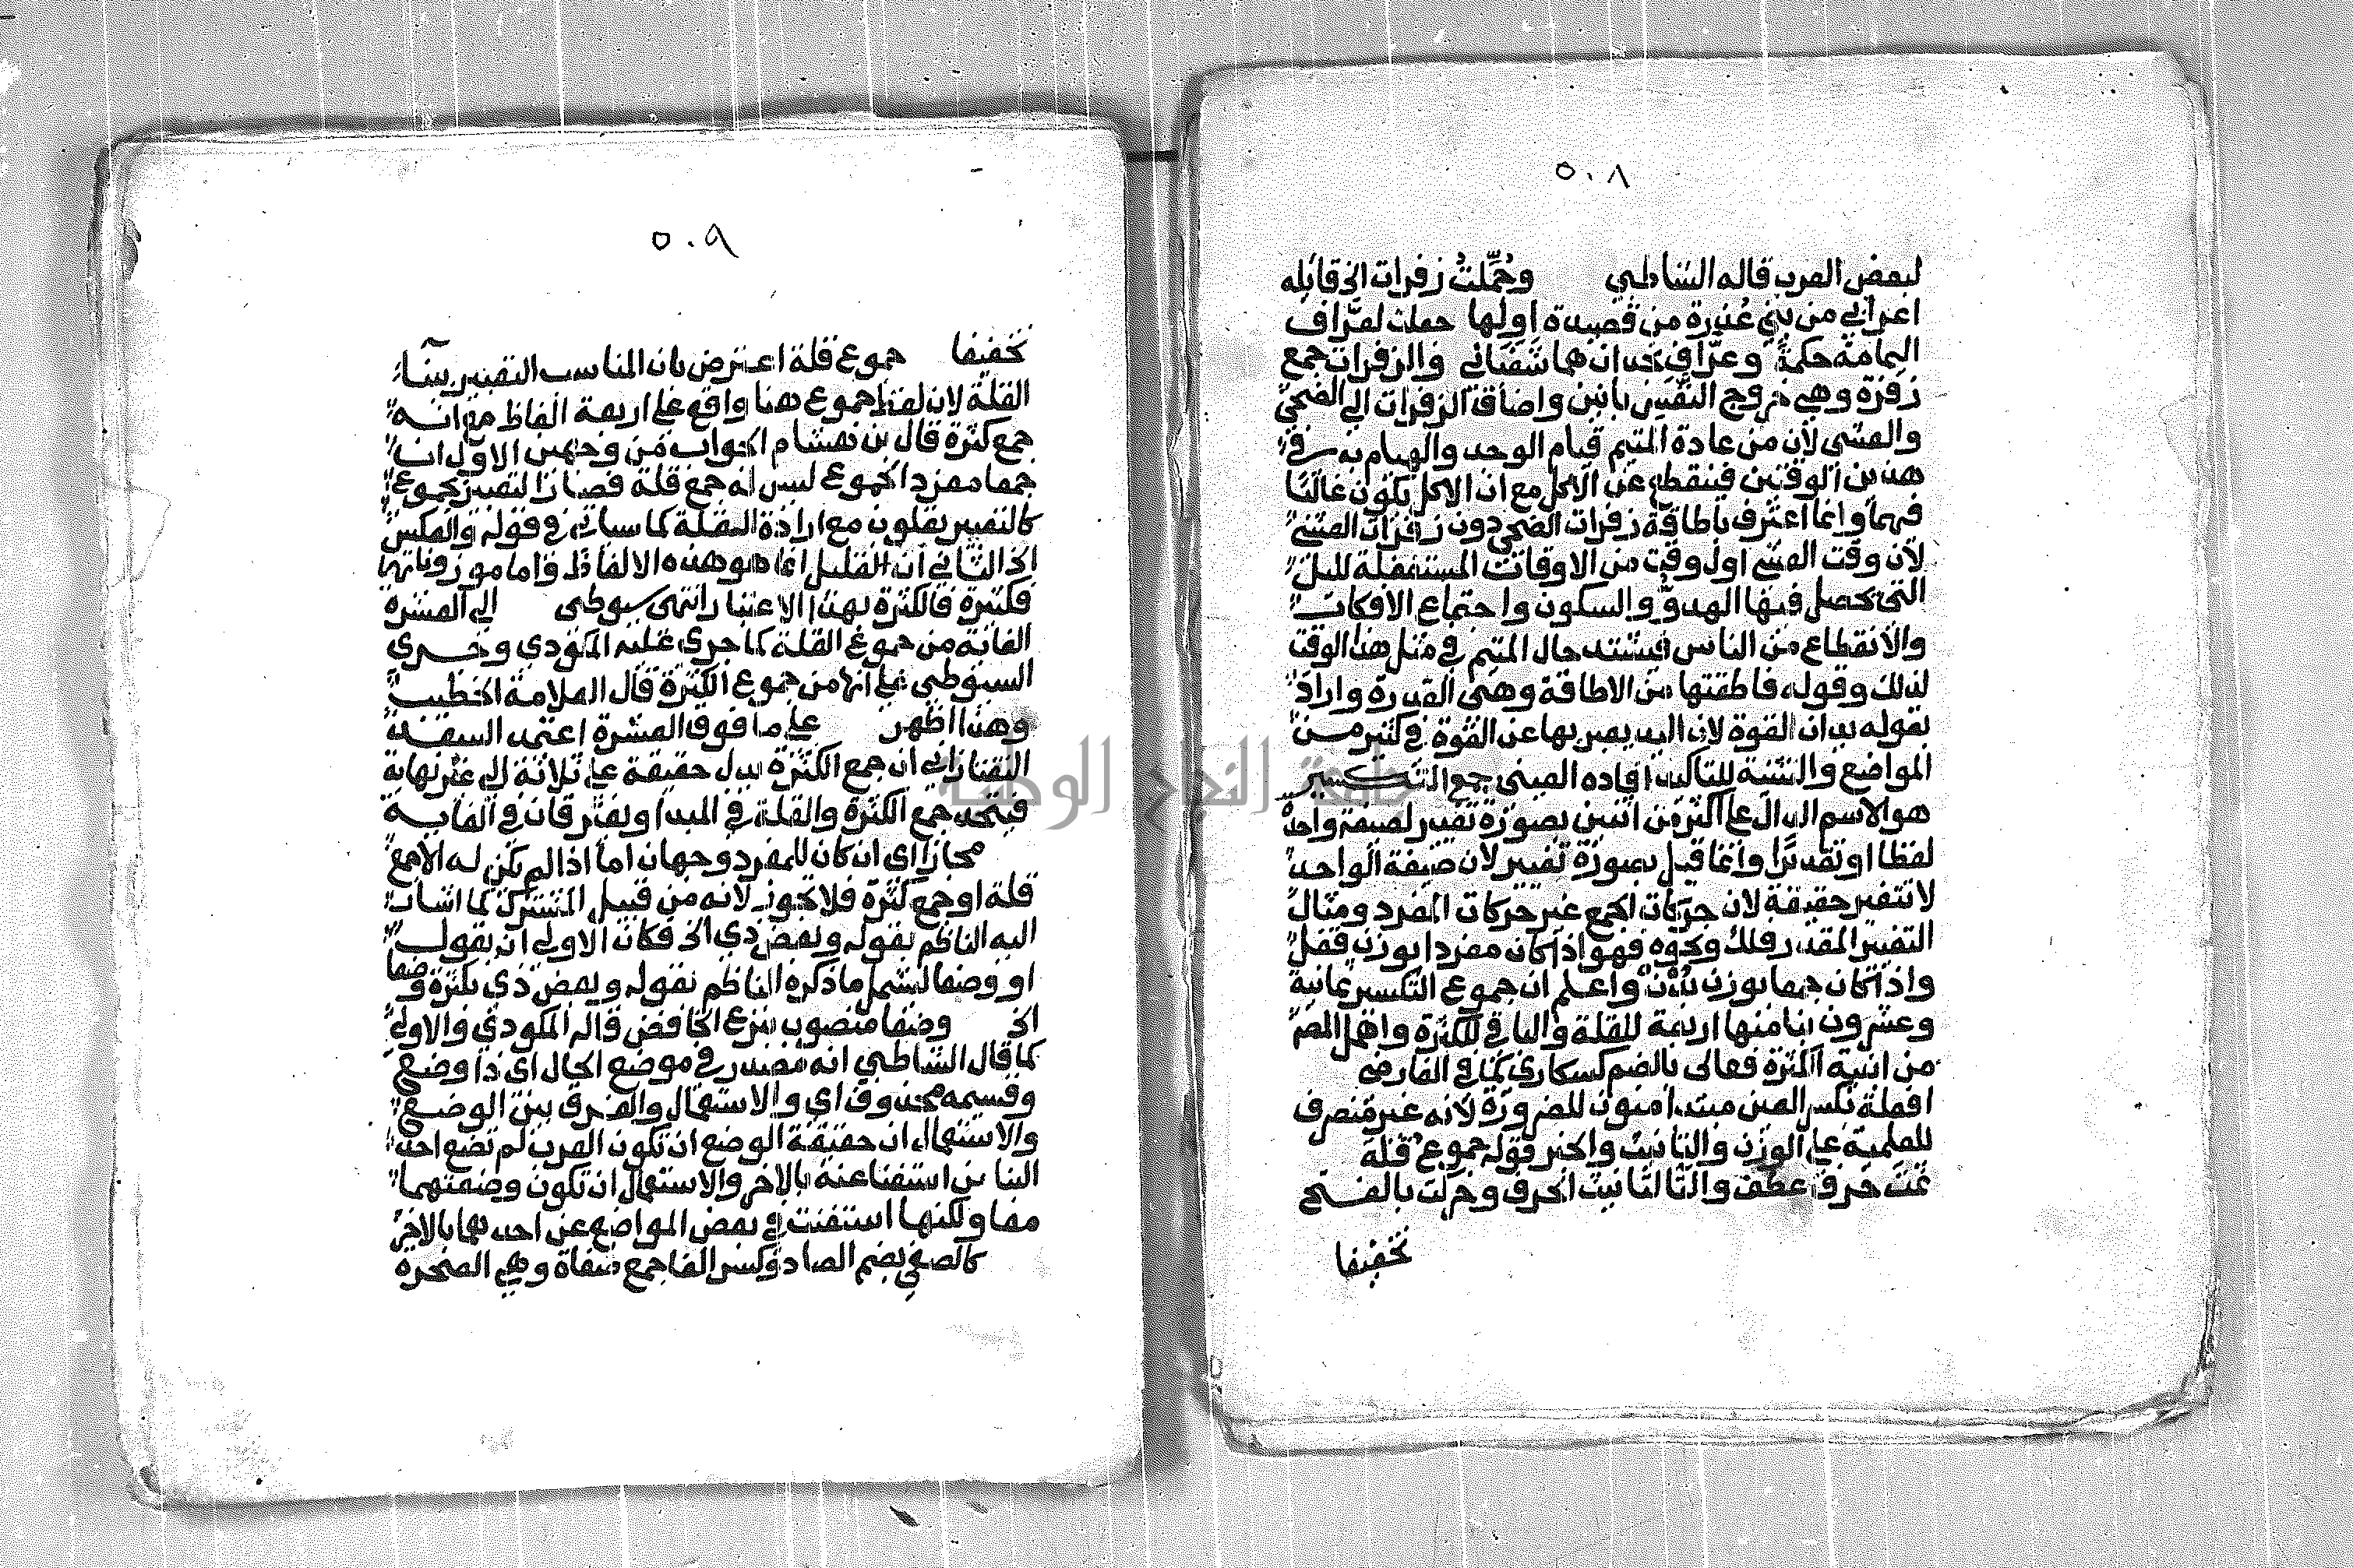 ٥٠٨
لبعض العرب قاله الشاطبي وحُمِّلتُ زفرات الخ قائله
اعرابي من بني عُذرة من قصيدة اولها جعلت لعرّاف
اليمامة حكمه وعرّاف نجد ان هما شفياني والزفرات جمع
زفرة وهي خروج النفَس بانين واضافة الزفرات الي الضحي
والعشي لان من عادة المتيم قيام الوجد والهيام به في
هذين الوقتين فينقطع عن الاكل مع ان الاكل يكون غالبا
فيهما وانما اعترف باطاقة زفرات الضحي دون زفرات العشي
لان وقت العشي اول وقت من الاوقات المستقبلة لليل
التي يحصل فيها الهدوّ والسكون واجتماع الافكار
والانقطاع من الناس فيشتد حال المتيم في مثل هذا الوقت
لذلك وقوله فاطقتها من الاطاقة وهي القدرة واراد
بقوله يدان القوة لان اليد يعبر بها عن القوة في كثير من
المواضع والتثنية للتاكيد افاده العيني جمع التكسير
هو الاسم الدال علي اكثر من اثنين بصورة تغيير لصيغة واحده
لفظا او تقديرا وانما قيل بصورة تغيير لان صيغة الواحد
لا تتغير حقيقة لان حركات الجمع غير حركات المفرد ومثال
التغيير المقدر فلك ونحوه فهو اذا كان مفردا بوزن قفل
واذا كان جمعا بوزن بُدْن واعلم ان جموع التكسير ثمانية
وعشرون بنا منها اربعة للقلة والباقي للكثرة واهمل المص
من ابنية الكثرة فعالى بالضم كسكارى كما في الفارضي
افعلة بكسر العين مبتدا منون للضرورة لانه غير منصرف
للعلمية علي الوزن والتانيث والخبر قوله جموع قلة
ثمت حرف عطف والتا لتانيث الحرف وحركت بالفتح
تخفيفا
٥٠٩
تخفيفا جموع قلة اعترض بان المناسب التعبير ببناء
القلة لان لفظ جموع هنا واقع علي اربعة الفاظ مع انه
جمع كثرة قال بن هشام الجواب من وجهين الاول ان
جمعا مفرد الجموع ليس له جمع قلة فصار التعبير بجموع
كالتعبير بقلوب مع ارادة القلة كما سياتي في قوله والعكس
الخ الثاني ان القليل انما هو هذه الالفاظ واما موزوناتها
فكثيرة فالكثرة بهذا الاعتبار انتهى سيوطي الي العشرة
الغاية من جموع القلة كما جرى عليه المكودي وجرى
السيوطي علي انها من جموع الكثرة قال العلامة الخطيب
وهذا اظهر علي ما فوق العشرة اعتمد السعد
التفتازاني ان جمع الكثرة يدل حقيقة علي ثلاثة الي غير نهاية
فيتحد جمع الكثرة والقلة في المبدا ويفترقان في الغاية
مجازا اي ان كان للمفرد وجهان اما اذا لم يكن له الا جمع
قلة او جمع كثرة فلا تجوز لانه من قبيل المشترك كما اشار
اليه الناظم بقوله وبعض ذي الخ فكان الاولى ان يقول
او وضعا ليشمل ما ذكره الناظم بقوله وبعض ذي بكثرة وضعا
الخ وضعا منصوب بنزع الخافض قاله المكودي والاولى
كما قال الشاطبي انه مصدر في موضع الحال اي ذا وضع
وقسيمه محذوف اي والاستعمال والفرق بين الوضع
والاستعمال ان حقيقة الوضع ان تكون العرب لم تضع احد
البناءين استغناء عنه بالاخر والاستعمال ان تكون وضعتهما
معا ولكنها استغنت في بعض المواضع عن احدهما بالاخر
كالصفي بضم الصاد وكسر الفا جمع صفاة وهي الصخرة